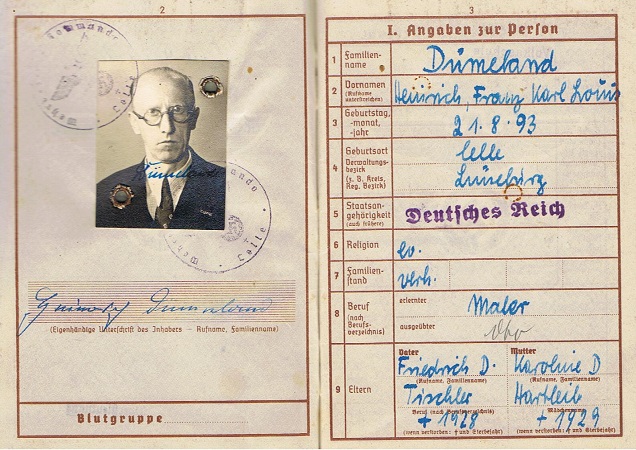 2
Kommando
Celle
Dümeland
Kommando
Celle
Heinrich Dümeland
(Eigenhändige Unterschrift des Inhabers — Rufname, Familienname)
Blutgruppe
3
I. Angaben zur Person
1 Familien-
name
Dümeland
2 Vornamen
(Rufname
unterstreichen)
Heinrich, Franz Karl Louis
3 Geburtstag,
-monat,
-jahr
21.8.93
4 Geburtsort
Verwaltungs-
bezirk
(z. B. Kreis,
Reg. Bezirk)
Celle
Lüneburg
5 Staatsan-
gehörigkeit
(auch frühere)
Deutsches Reich
6 Religion
ev.
7 Familien-
stand
verh.
8 Beruf
(nach
Berufs-
verzeichnis)
erlernter
Maler
ausgeübter
9 Eltern
Vater
Friedrich D.
(Rufname, Familienname)
Tischler
Beruf (nach Berufsverzeichnis)
+ 1928
(wenn verstorben: † und Sterbejahr)
Mutter
Karoline D
(Rufname, Familienname)
Hartleib
Mädchenname
+ 1929
(wenn verstorben: † und Sterbejahr)